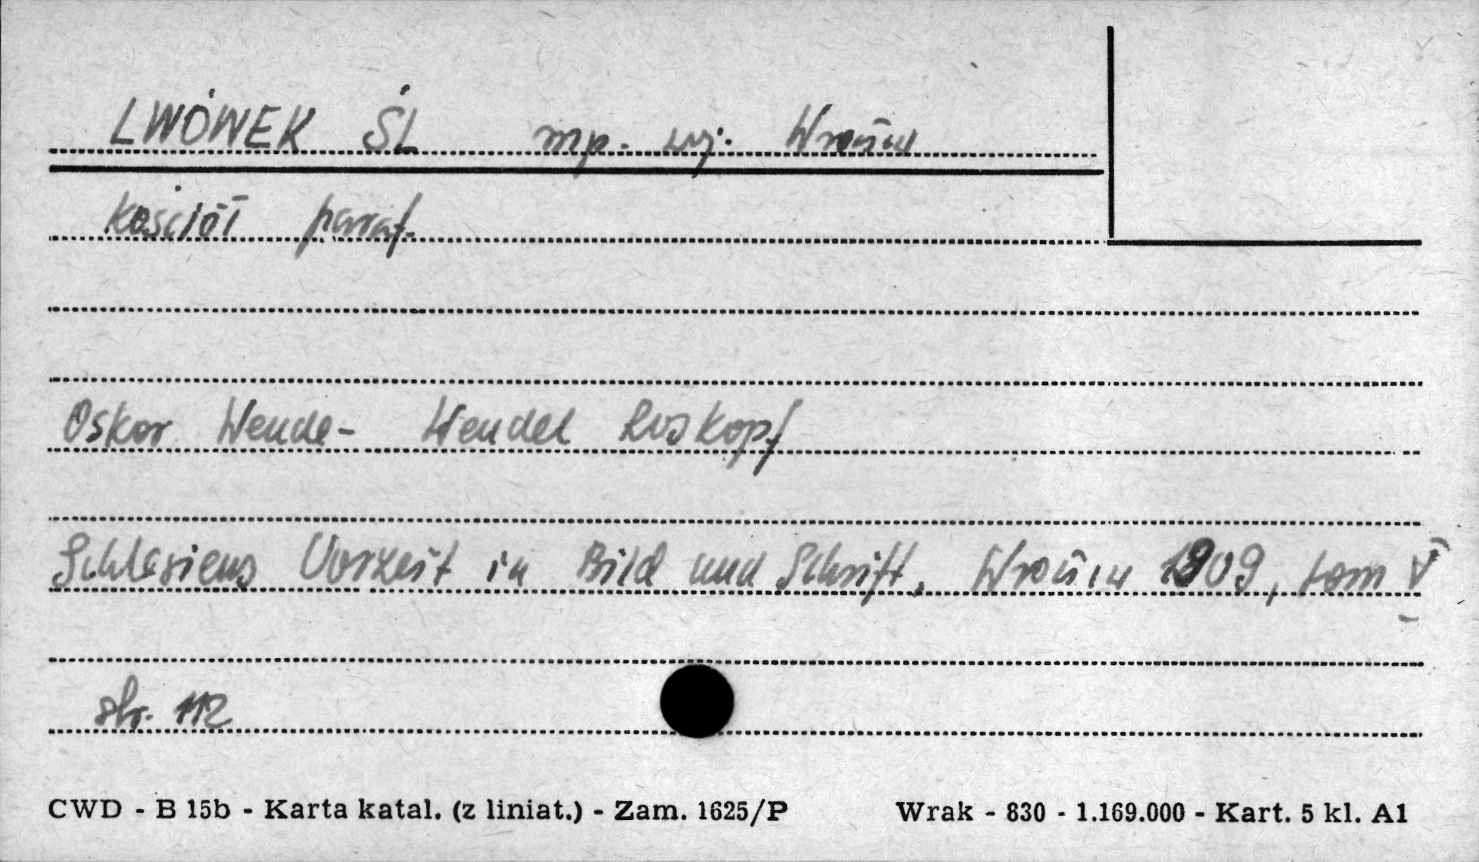 LWÓWEK ŚL mp. woj. Wrocław
kościół paraf.
Oskar Wende - Wendel Roskopf
Schlesiens Vorzeit in Bild und Schrift, Wrocław 1909, tom V
str. 112
CWD - B 15b - Karta katal. (z liniat.) - Zam. 1625/P Wrak - 830 - 1.169.000 - Kart. 5 kl. A1